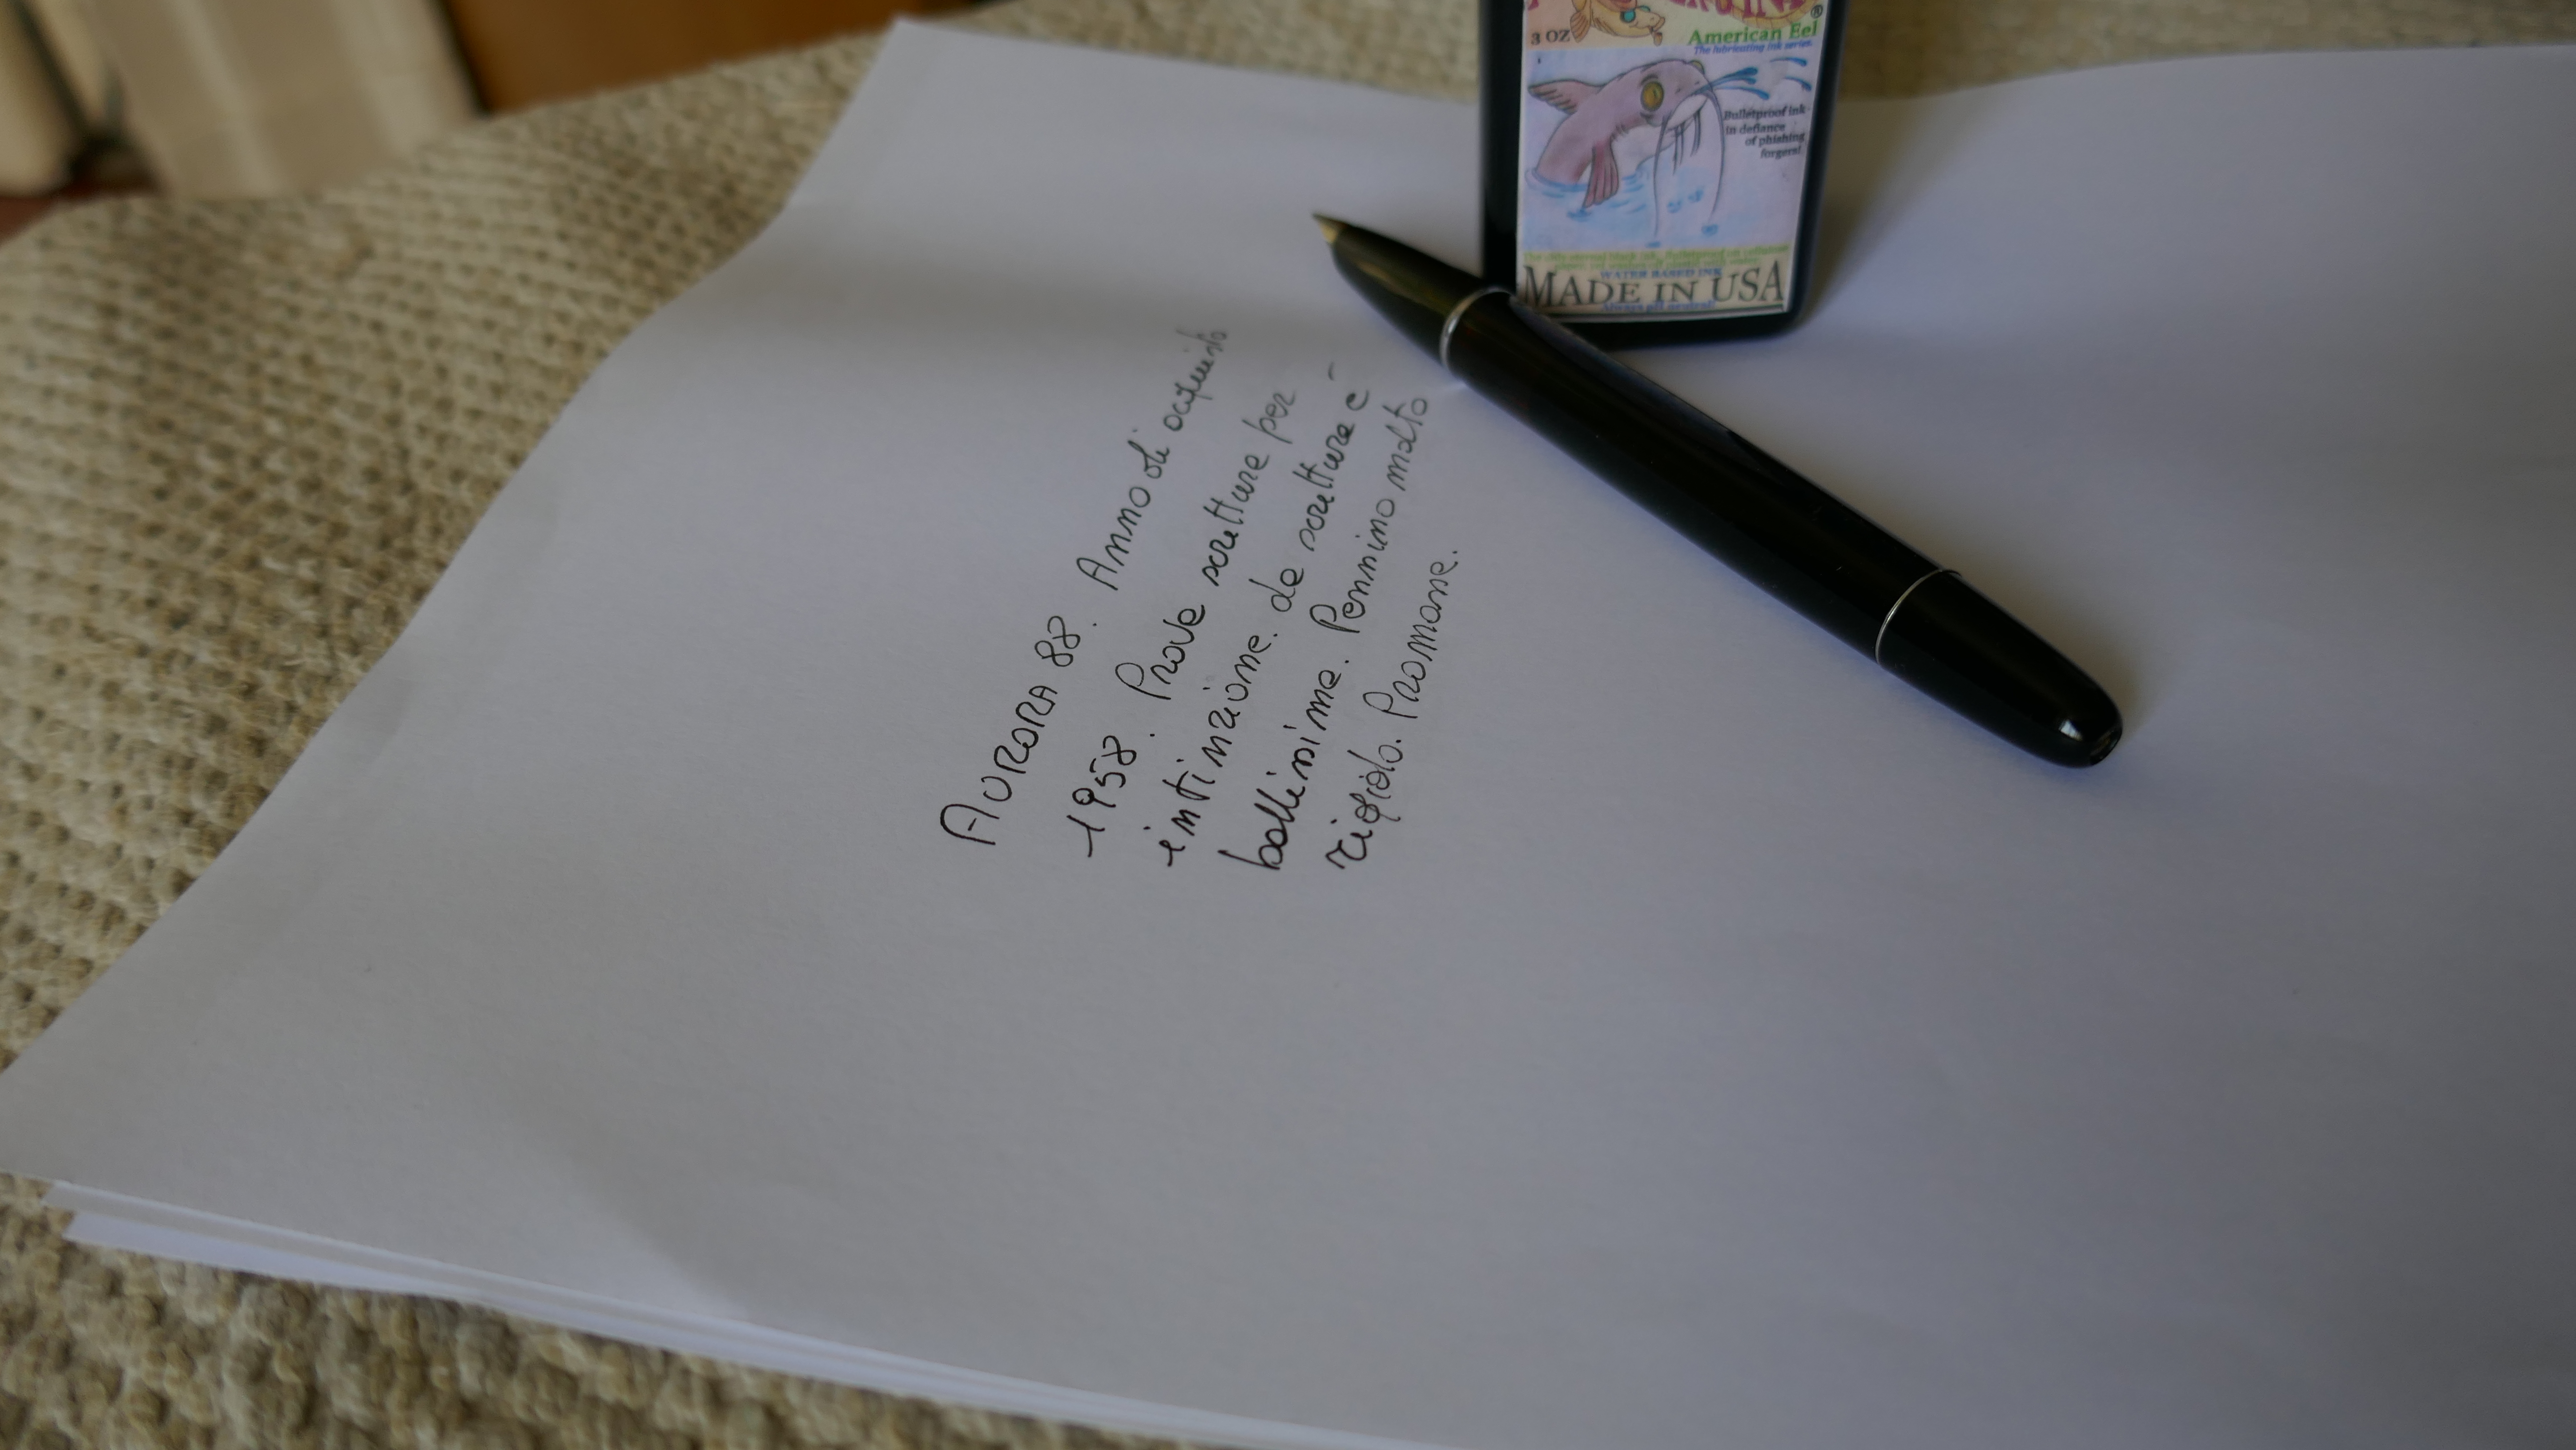 3 OZ
American Eel
The lubricating ink series.
Bulletproof ink
in defiance
of phishing
forgers!
WATER BASED INK
MADE IN USA
Always pH neutral!
AURORA 88. Anno di acquisto
1958. Prove scritture per
intinzione. La scrittura è
bellissima. Pennino molto
rigido. Promosse.